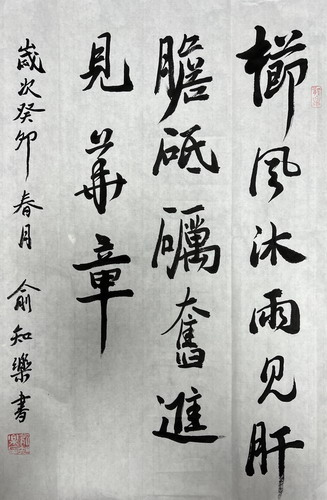 櫛風沐雨見肝
膽砥礪奮進
見華章
歲次癸卯春月俞知樂書